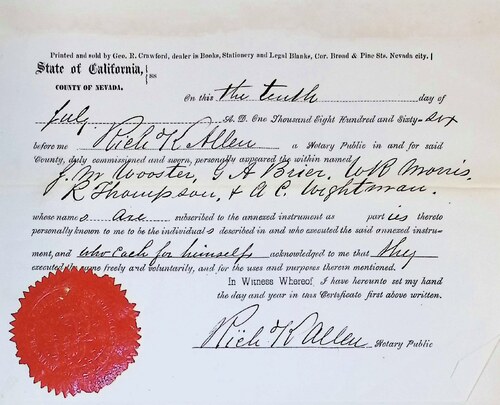 Printed and sold by Geo. R. Crawford, dealer in Books, Stationery and Legal Blanks, Cor. Broad & Pine Sts. Nevada city.
State of California, } ss
COUNTY OF NEVADA.
On this the tenth day of
July A. D. One Thousand Eight Hundred and Sixty-six
before me Rich K Allen a Notary Public in and for said
County, duly commissioned and sworn, personally appeared the within named
J. M Wooster, G A Brier, W R Morris,
R Thompson, & A C Wightman.
whose name s are subscribed to the annexed instrument as part ies thereto
personally known to me to be the individual s described in and who executed the said annexed instru-
ment, and who each for himself acknowledged to me that they
executed the same freely and voluntarily, and for the uses and purposes therein mentioned.
In Witness Whereof I have hereunto set my hand
the day and year in this Certificate first above written.
Rich K Allen Notary Public